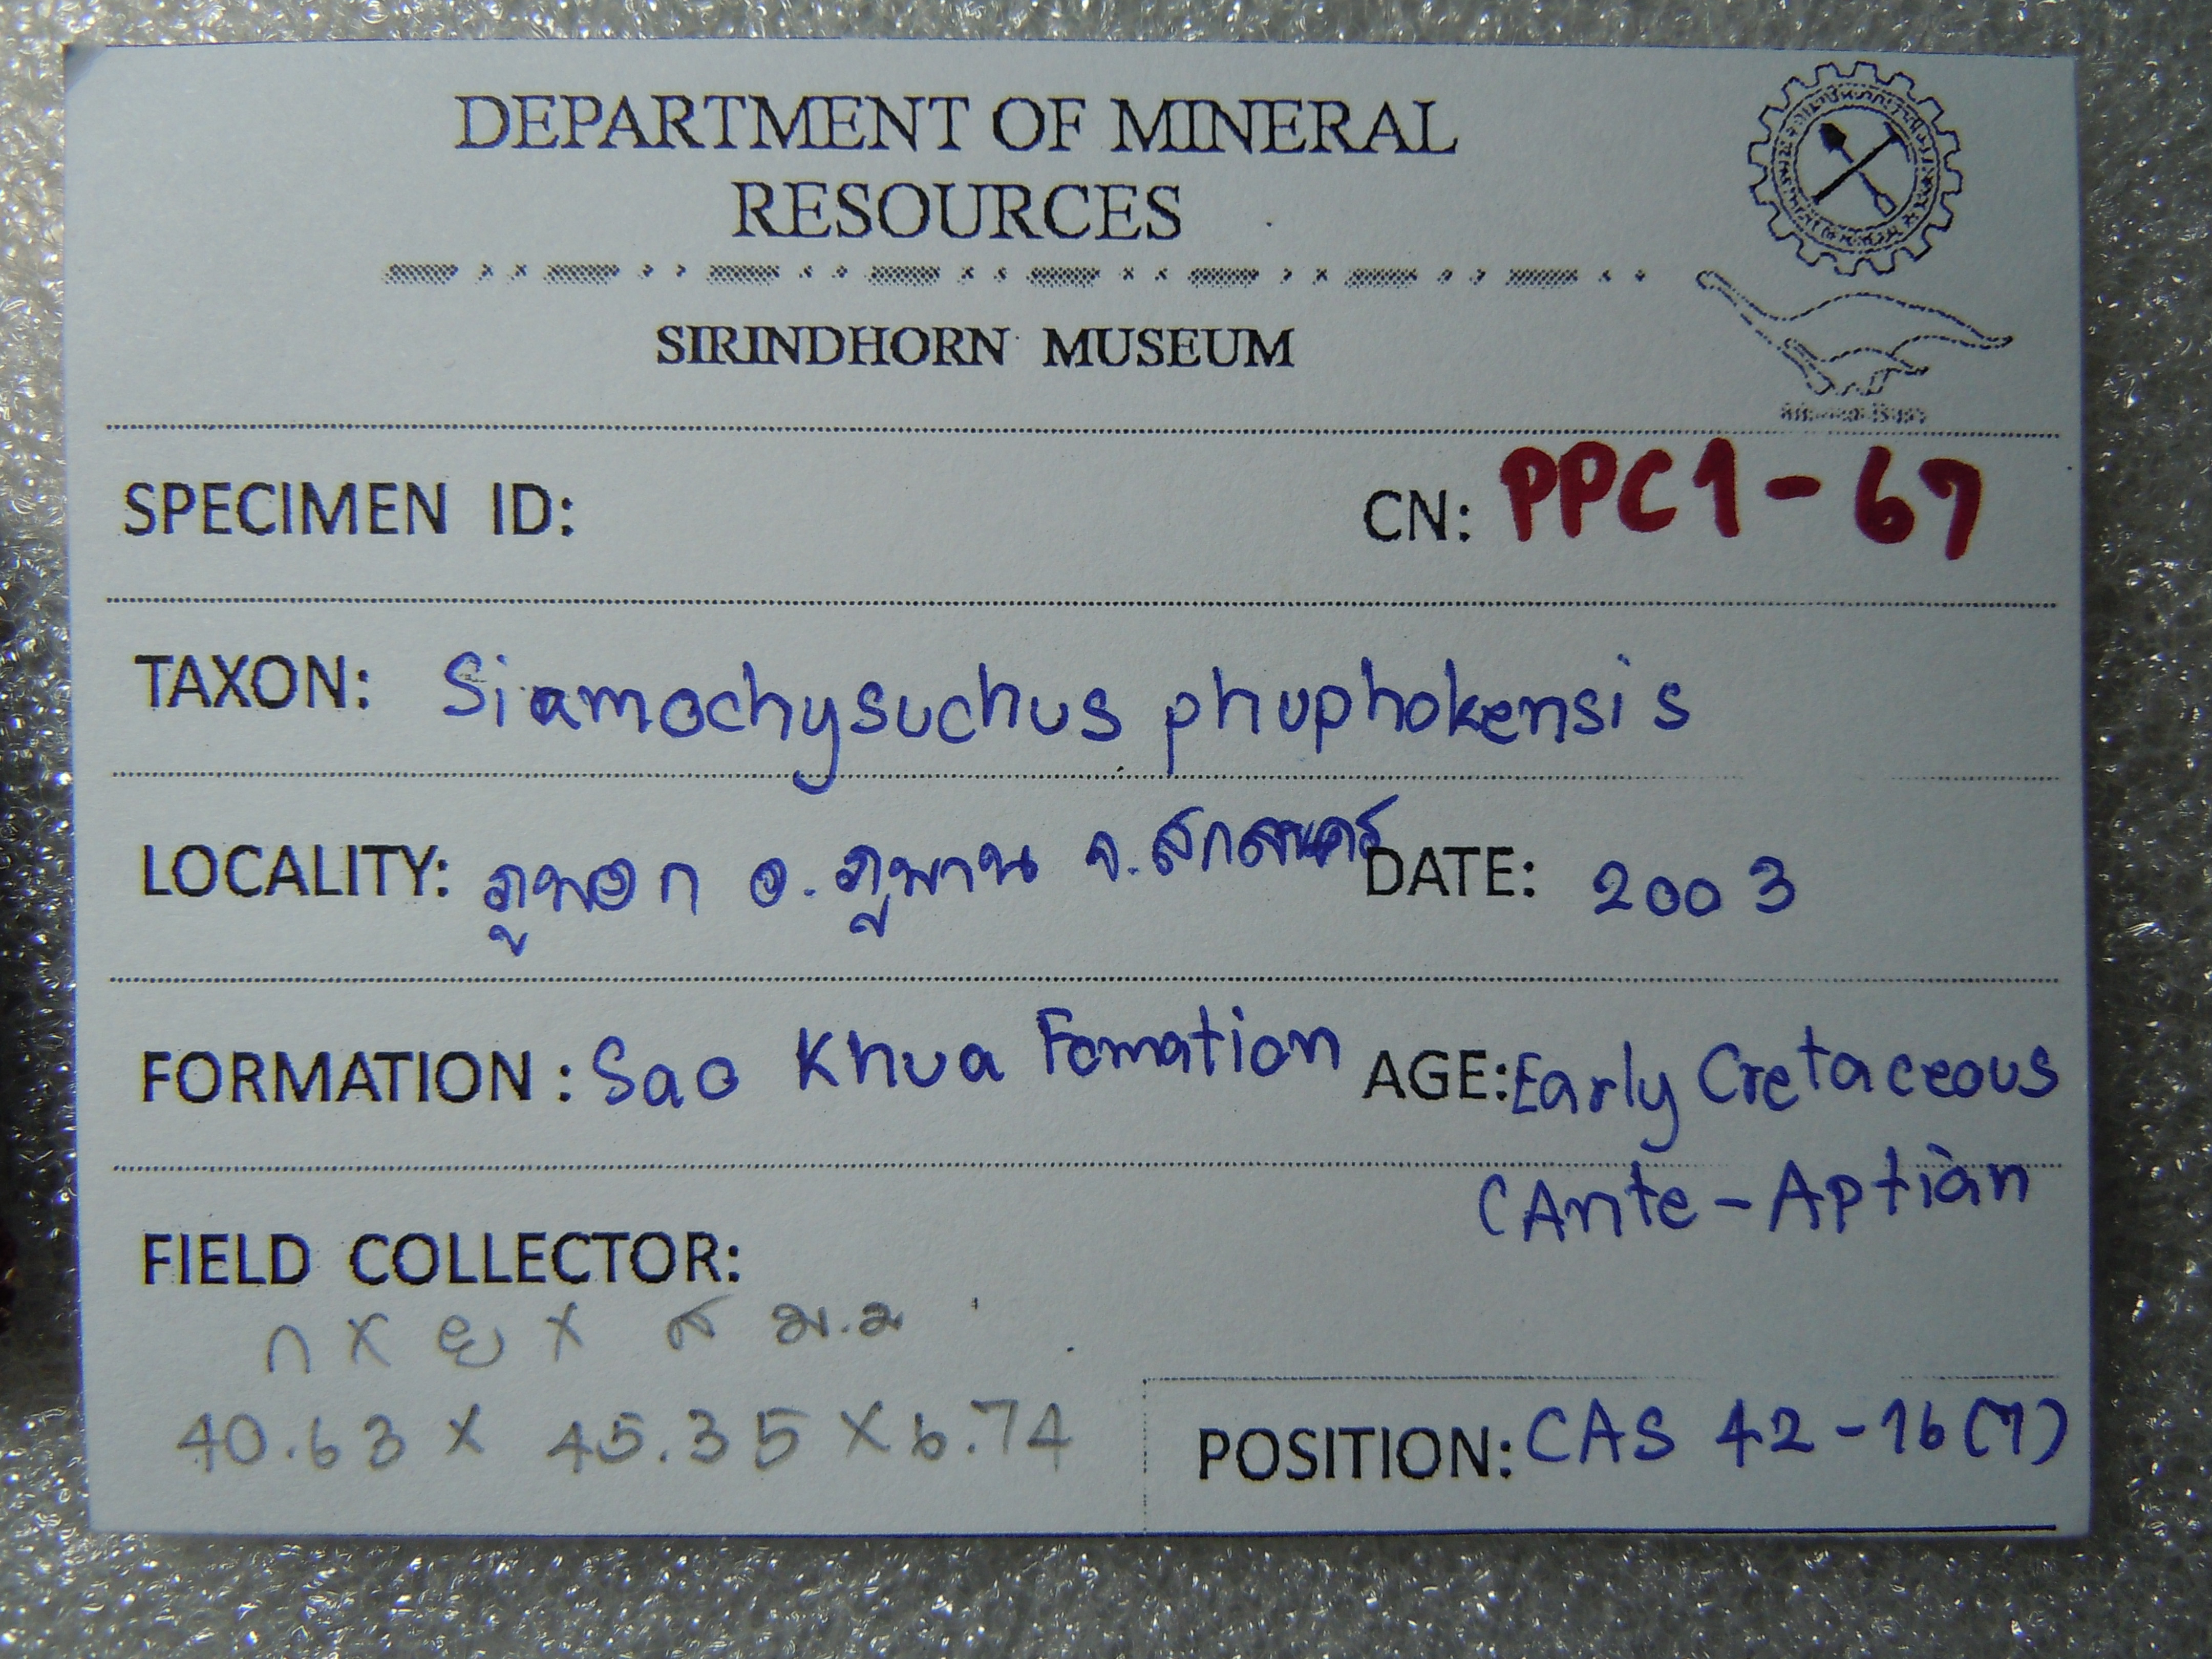 DEPARTMENT OF MINERAL
RESOURCES
SIRINDHORN MUSEUM
SPECIMEN ID: CN: PPC1-67
TAXON: Siamochysuchus phuphokensis
LOCALITY: ภูพอก อ.ภูพาน จ.สกลนคร DATE: 2003
FORMATION : Sao Khua Fomation AGE: Early Cretaceous
(Ante-Aptian
FIELD COLLECTOR:
ก x ย x ส ม.ม
40.63 x 45.35 x 6.74
POSITION: CAS 42-16(7)